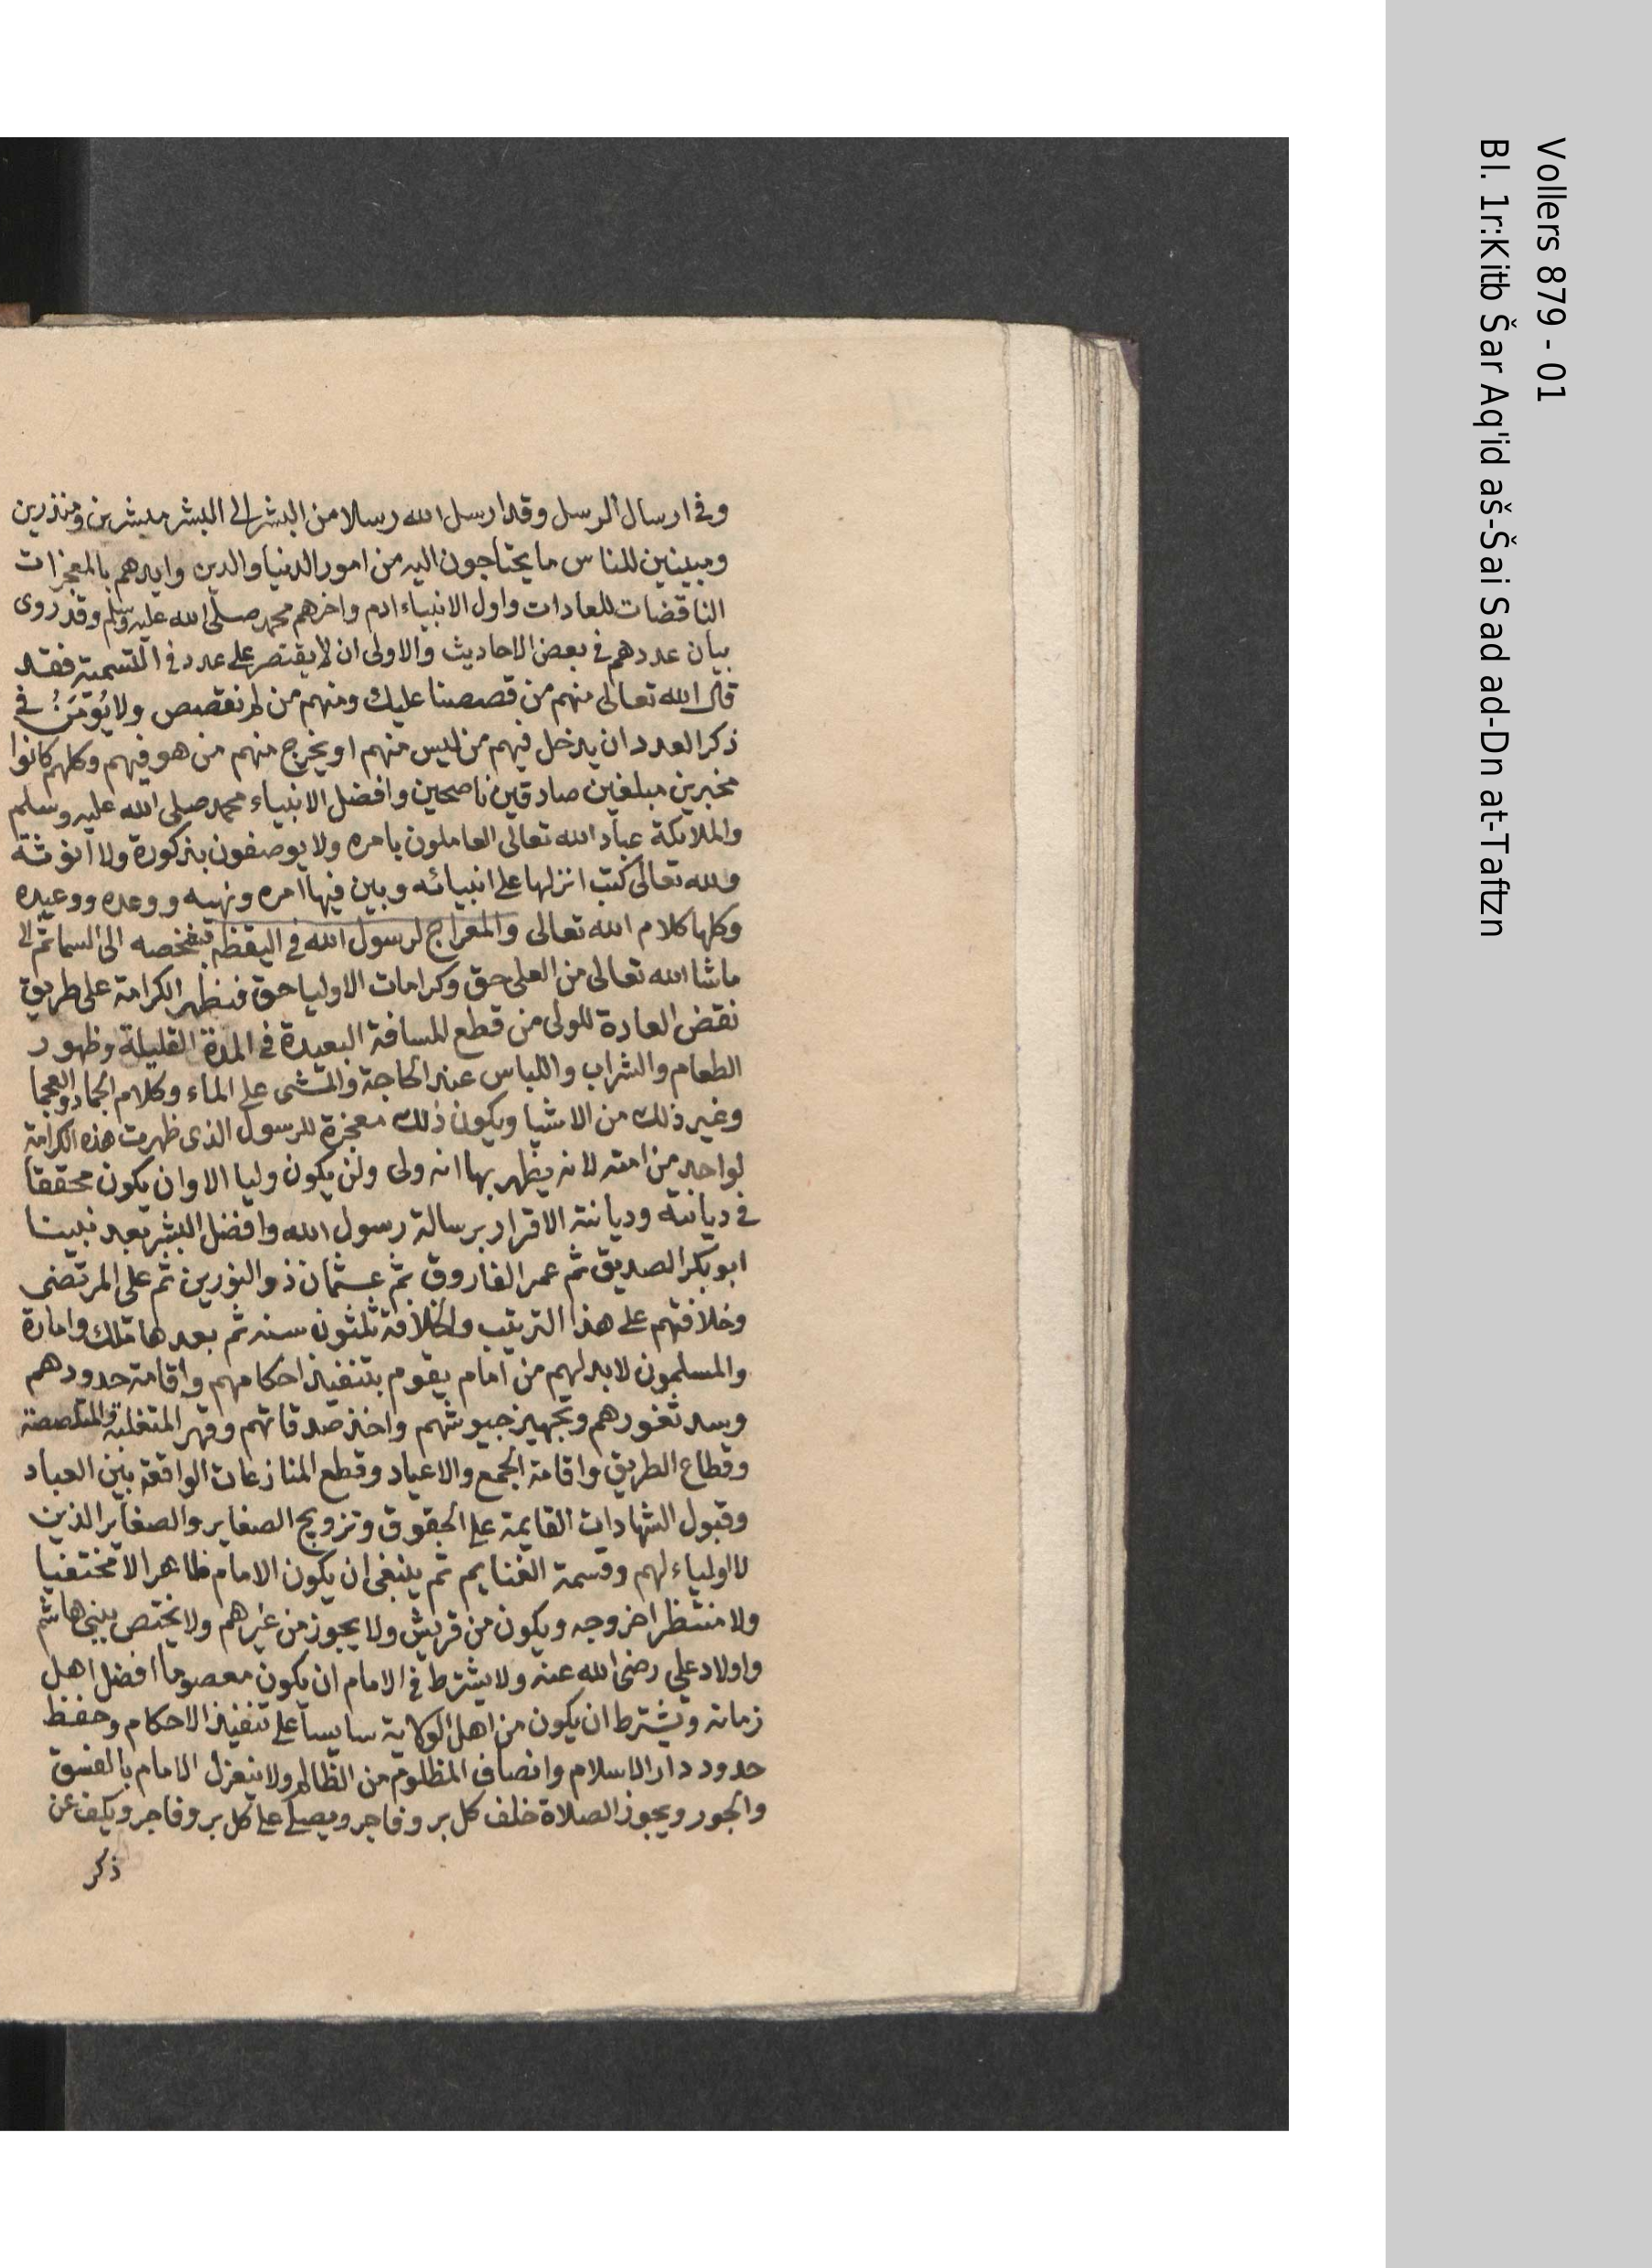 وفي ارسال الرسل وقد ارسل الله رسلا من البشر الى البشر مبشرين ومنذرين
ومبينين للناس ما يحتاجون اليه من امور الدنيا والدين وايدهم بالمعجزات
الناقضات للعادات واول الانبياء ادم واخرهم محمد صلى الله عليه وسلم وقد روى
بيان عددهم في بعض الاحاديث والاولى ان لا يقتصر على عدد في التسمية فقد
قال الله تعالى منهم من قصصنا عليك ومنهم من لم نقصص ولا يُؤمَنُ في
ذكر العدد ان يدخل فيهم من ليس منهم او يخرج منهم من هو فيهم وكلهم كانوا
مخبرين مبلغين صادقين ناصحين وافضل الانبياء محمد صلى الله عليه وسلم
والملايكة عباد الله تعالى العاملون بامره ولا يوصفون بذكورة ولا انوثة
ولله تعالى كتب انزلها على انبيائه وبين فيها امره ونهيه ووعده ووعيده
وكلها كلام الله تعالى والمعراج لرسول الله في اليقظة بشخصه الى السما ثم الى
ما شا الله تعالى من العلى حق وكرامات الاوليا حق فتظهر الكرامة على طريق
نقض العادة للولى من قطع المسافة البعيدة في المدة القليلة وظهور
الطعام والشراب واللباس عند الحاجة والمشى على الماء وكلام الجماد والعجما
وغير ذلك من الاشيا ويكون ذلك معجزة للرسول الذى ظهرت هذه الكرامة
لواحد من امته لانه يظهر بها انه ولى ولن يكون وليا الا وان يكون محققا
في ديانته وديانته الاقرار برسالة رسول الله وافضل البشر بعد نبينا
ابو بكر الصديق ثم عمر الفاروق ثم عثمان ذو النورين ثم على المرتضى
وخلافتهم على هذا الترتيب والخلافة ثلثون سنه ثم بعدها ملك وامارة
والمسلمون لا بد لهم من امام يقوم بتنفيذ احكامهم واقامة حدودهم
وسد ثغورهم وتجهيز جيوشهم واخذ صدقاتهم وقهر المتغلبة والمتلصصة
وقطاع الطريق واقامة الجمع والاعياد وقطع المنازعات الواقعة بين العباد
وقبول الشهادات القايمة على الحقوق وتزويج الصغاير والصغاير الذين
لا اولياء لهم وقسمة الغنايم ثم ينبغى ان يكون الامام ظاهرا لا مختفيا
ولا منتظرا خروجه ويكون من قريش ولا يجوز من غيرهم ولا يختص ببنى هاشم
واولاد علي رضى الله عنه ولا يشترط في الامام ان يكون معصوما افضل اهل
زمانه ويشترط ان يكون من اهل الولاية سايسا على تنفيذ الاحكام وحفظ
حدود دار الاسلام وانصاف المظلوم من الظالم ولا ينعزل الامام بالفسق
والجور ويجوز الصلاة خلف كل بر وفاجر ويصلى على كل بر وفاجر ويكف عن
ذكر
Vollers 879 - 01
Bl. 1r:Kitb Šar Aq'id aš-Šai Sad ad-Dn at-Taftzn